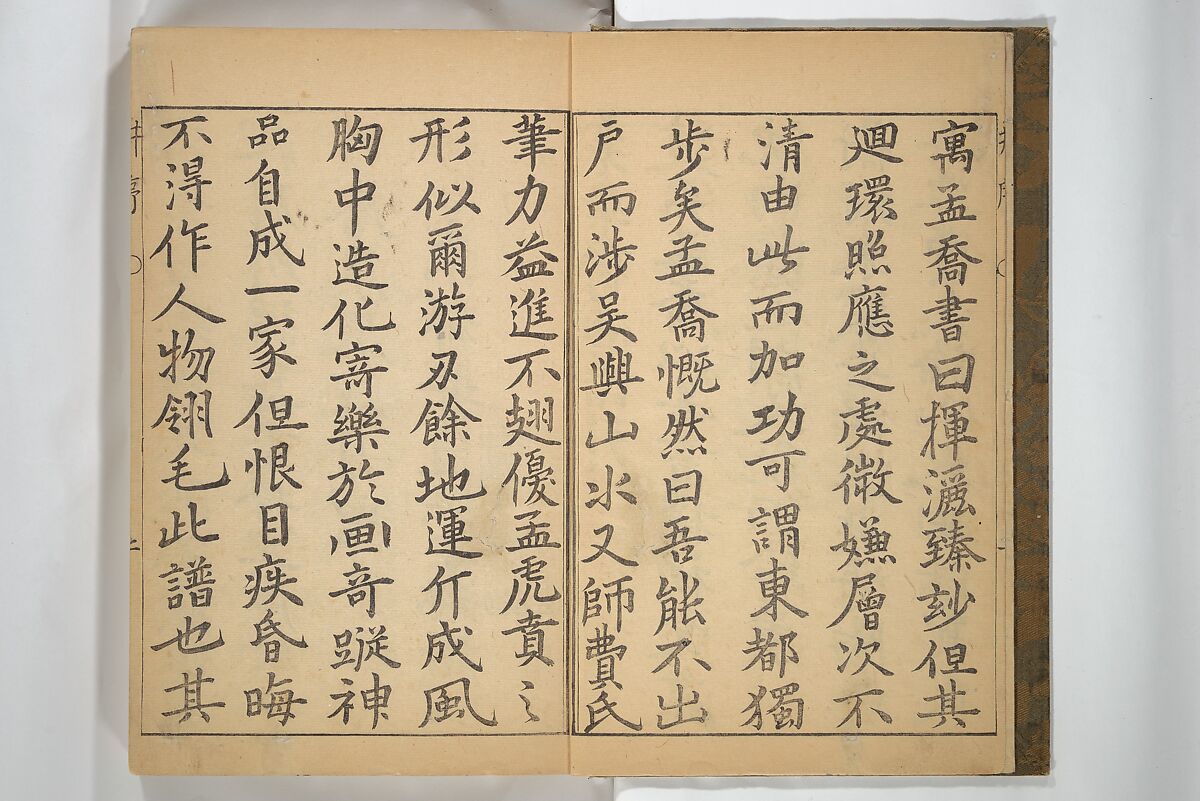 寓孟喬書曰揮灑臻玅但其
廻環照應之處微嫌層次不
清由此而加功可謂東都獨
步矣孟喬慨然曰吾能不出
戶而涉吴興山水又師費氏
筆力益進不翅優孟虎賁之
形似爾游刃餘地運斤成風
胸中造化寄樂於画竒蹤神
品自成一家但恨目疾昏晦
不得作人物翎毛此譜也其